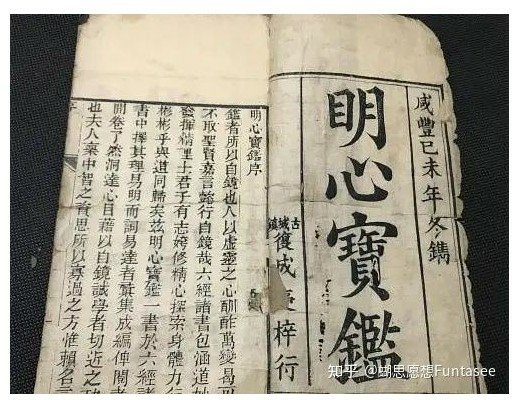 咸豐己未年冬鐫
明心寶鑑
古城鎮
復成
梓行
明心寶鑑序
鑑者所以自鏡也人以虛靈之心酬酢萬變曷可
不取聖賢嘉言懿行自鏡哉六經諸書包涵道妙
發揮情理士君子有志修精心探索身體力行
彬彬乎與道同歸矣茲明心寶鑑一書於六經諸
書中擇其理易明而詞易達者彙集成編俾閱者
開卷了然洞達心目藉以自鏡誠學者切近之功
也夫人稟中智之資思所以寡過之方惟賴名言
知乎 @蝴思愿想Funtasee